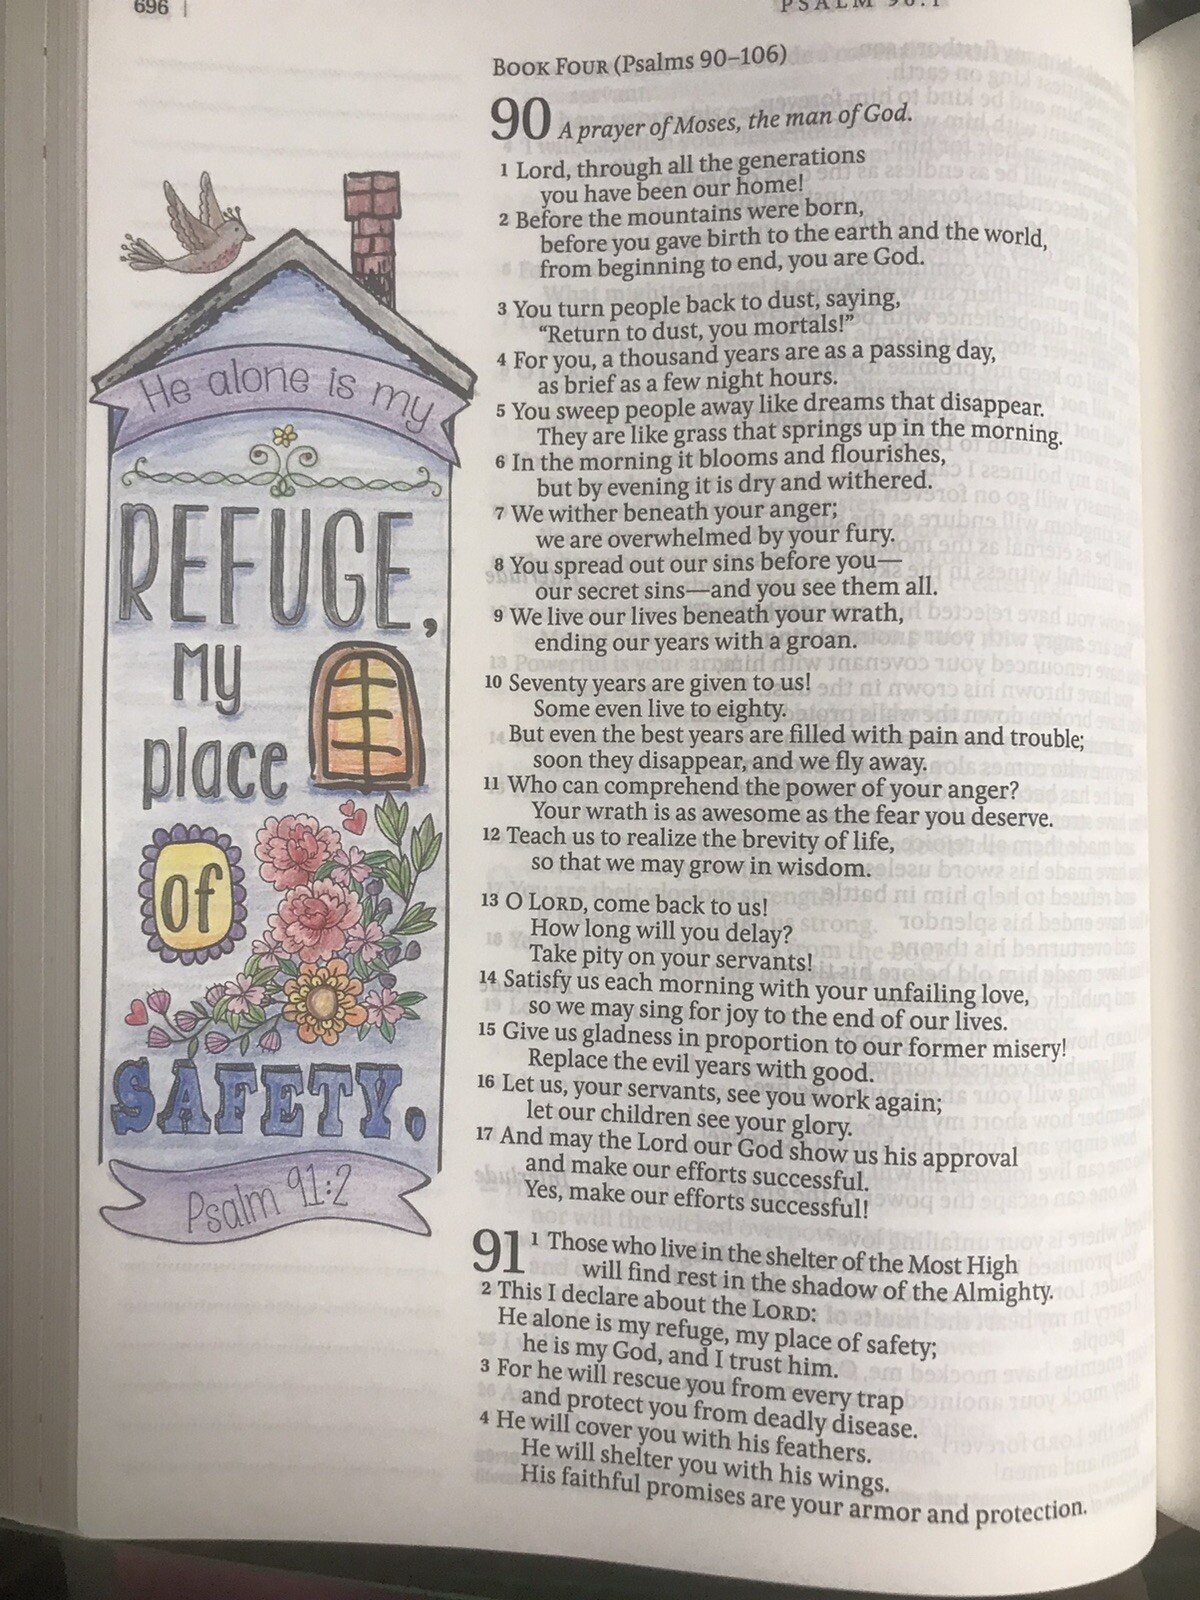 696 |
PSALM 90:1
BOOK FOUR (Psalms 90–106)
90 A prayer of Moses, the man of God.
1 Lord, through all the generations
you have been our home!
2 Before the mountains were born,
before you gave birth to the earth and the world,
from beginning to end, you are God.
3 You turn people back to dust, saying,
“Return to dust, you mortals!”
4 For you, a thousand years are as a passing day,
as brief as a few night hours.
5 You sweep people away like dreams that disappear.
They are like grass that springs up in the morning.
6 In the morning it blooms and flourishes,
but by evening it is dry and withered.
7 We wither beneath your anger;
we are overwhelmed by your fury.
8 You spread out our sins before you—
our secret sins—and you see them all.
9 We live our lives beneath your wrath,
ending our years with a groan.
10 Seventy years are given to us!
Some even live to eighty.
But even the best years are filled with pain and trouble;
soon they disappear, and we fly away.
11 Who can comprehend the power of your anger?
Your wrath is as awesome as the fear you deserve.
12 Teach us to realize the brevity of life,
so that we may grow in wisdom.
13 O LORD, come back to us!
How long will you delay?
Take pity on your servants!
14 Satisfy us each morning with your unfailing love,
so we may sing for joy to the end of our lives.
15 Give us gladness in proportion to our former misery!
Replace the evil years with good.
16 Let us, your servants, see you work again;
let our children see your glory.
17 And may the Lord our God show us his approval
and make our efforts successful.
Yes, make our efforts successful!
91 1 Those who live in the shelter of the Most High
will find rest in the shadow of the Almighty.
2 This I declare about the LORD:
He alone is my refuge, my place of safety;
he is my God, and I trust him.
3 For he will rescue you from every trap
and protect you from deadly disease.
4 He will cover you with his feathers.
He will shelter you with his wings.
His faithful promises are your armor and protection.
He alone is my
REFUGE,
My
place
of
SAFETY.
Psalm 91:2